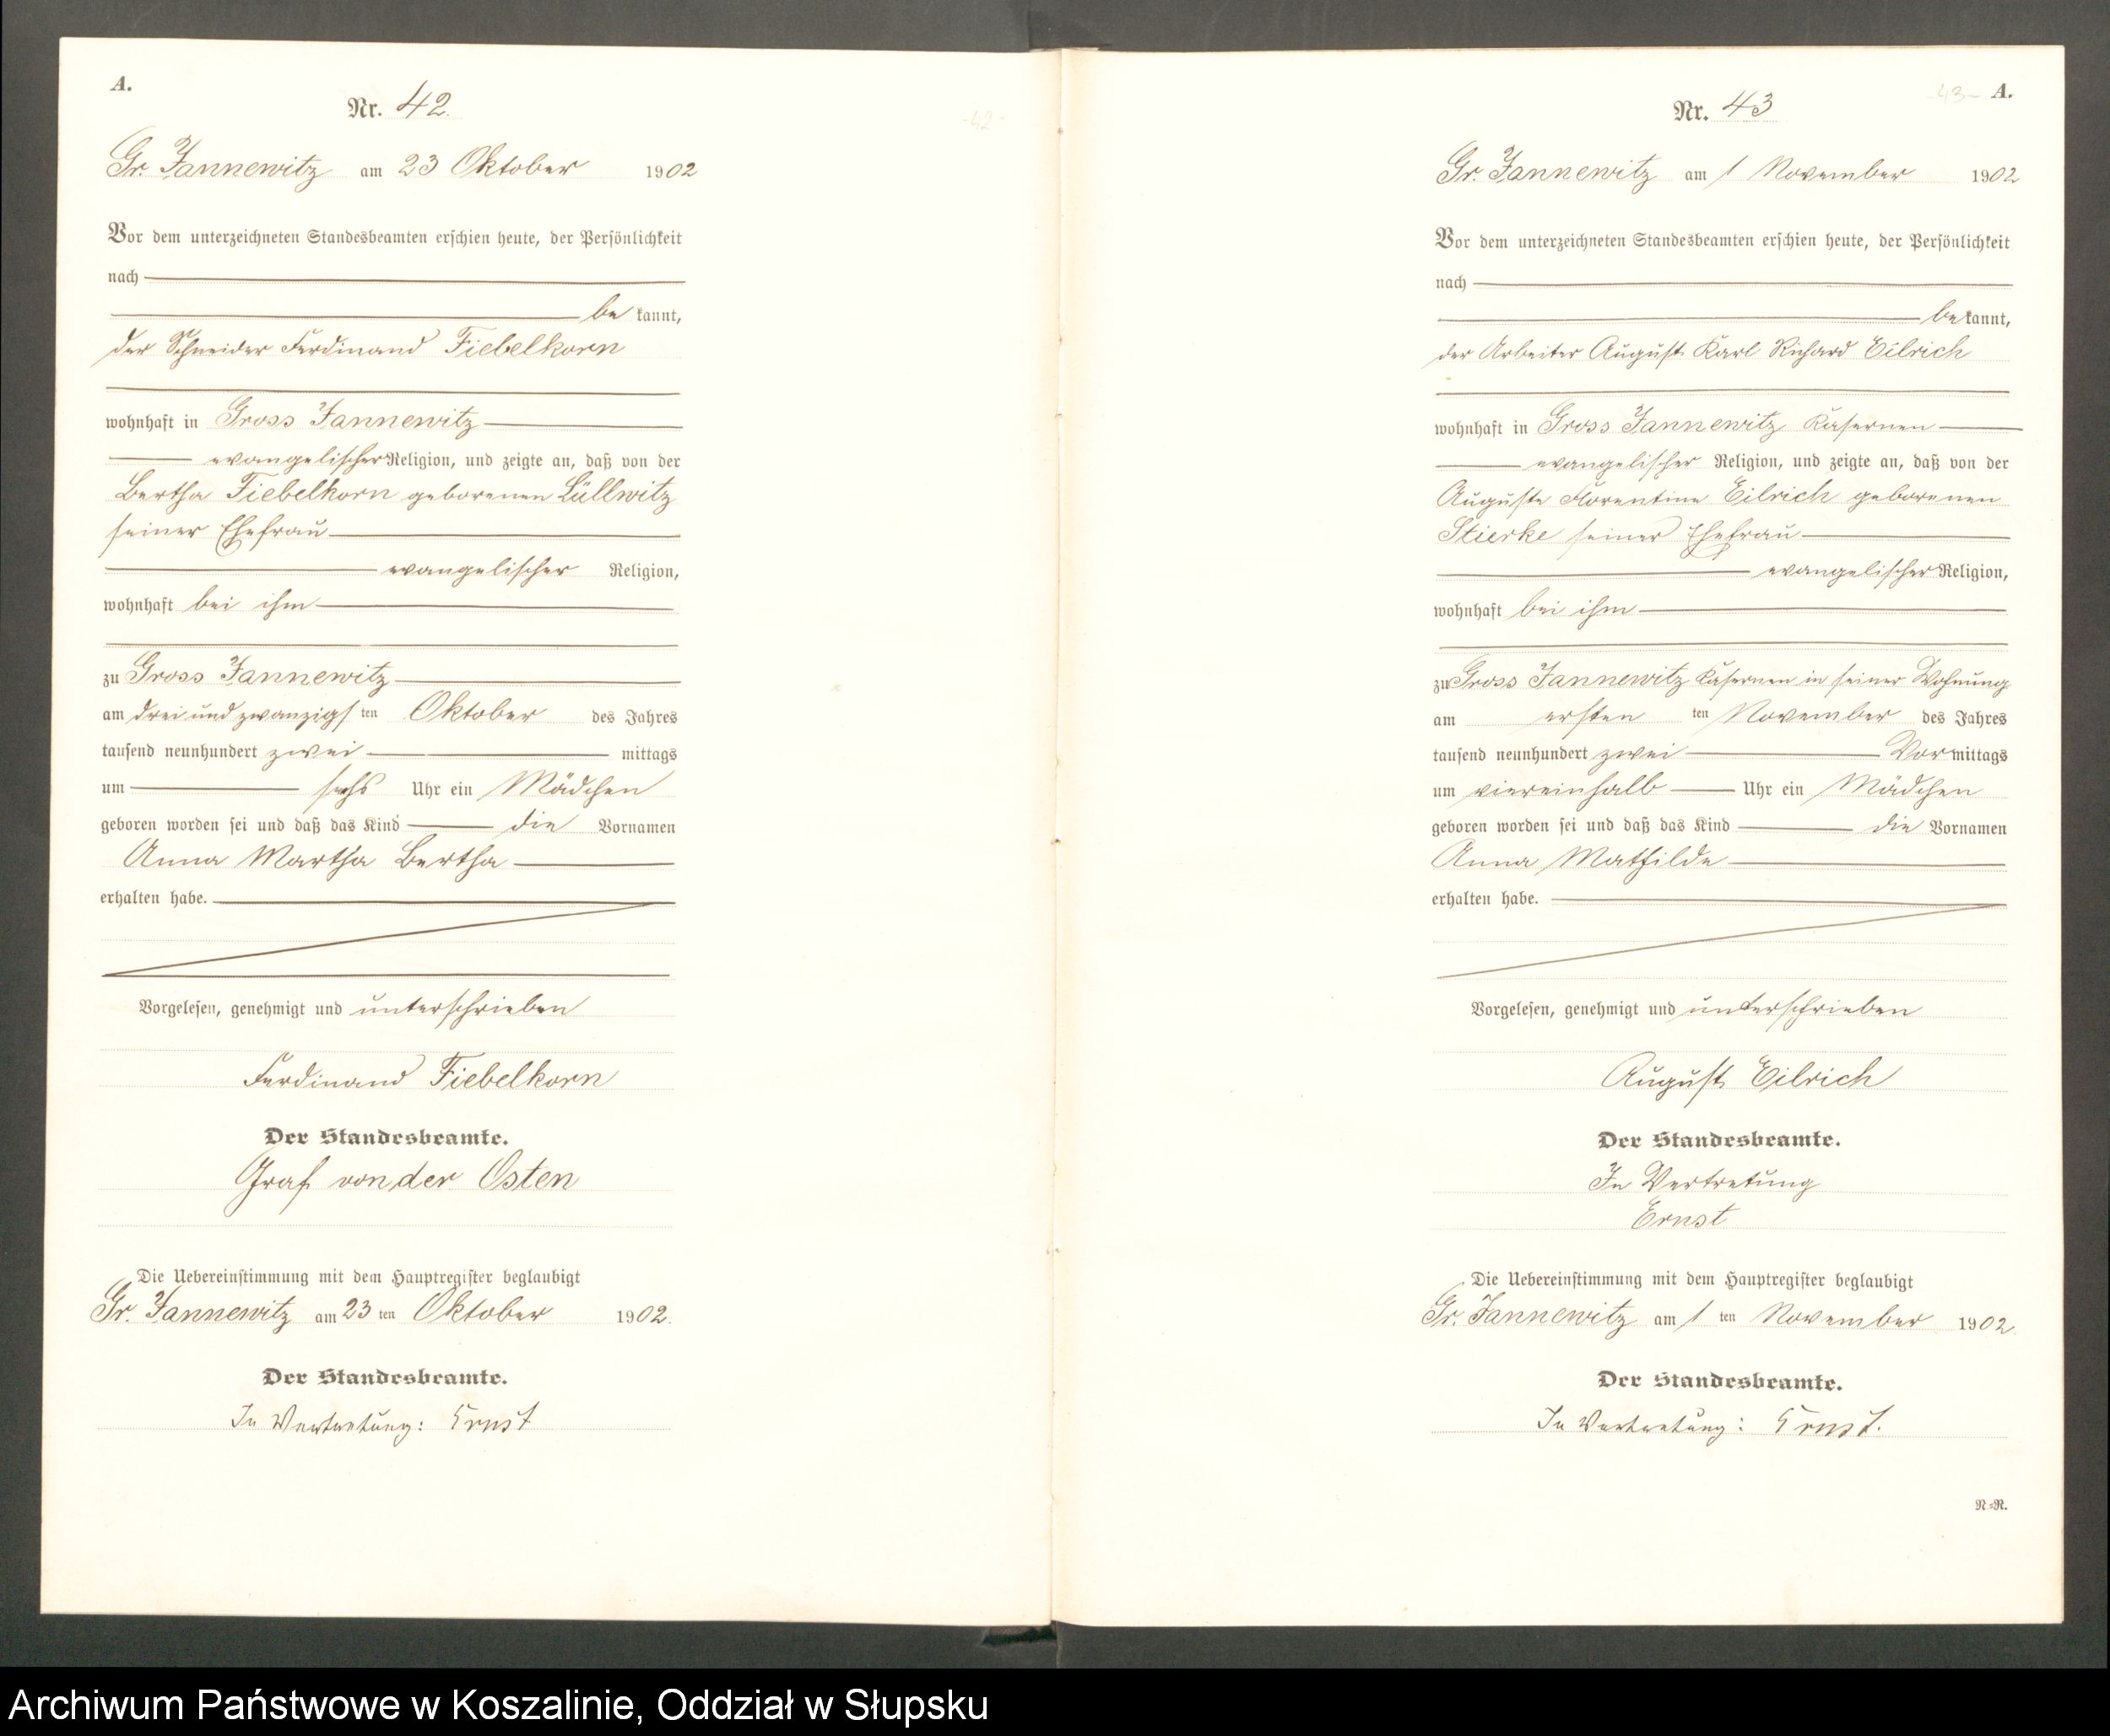 A.
Nr. 42.
Gr. Jannewitz am 23 Oktober 1902
Vor dem unterzeichneten Standesbeamten erschien heute, der Persönlichkeit
nach
be kannt,
der Schneider Ferdinand Fiebelkorn
wohnhaft in Gross Jannewitz
evangelischer Religion, und zeigte an, daß von der
Bertha Fiebelkorn geborenen Lüllwitz
seiner Ehefrau
evangelischer Religion,
wohnhaft bei ihm
zu Gross Jannewitz
am drei und zwanzigs ten Oktober des Jahres
tausend neunhundert zwei mittags
um sechs Uhr ein Mädchen
geboren worden sei und daß das Kind die Vornamen
Anna Martha Bertha
erhalten habe.
Vorgelesen, genehmigt und unterschrieben
Ferdinand Fiebelkorn
Der Standesbeamte.
Graf von der Osten
Die Uebereinstimmung mit dem Hauptregister beglaubigt
Gr. Jannewitz am 23 ten Oktober 1902.
Der Standesbeamte.
In Vertretung: Ernst
-42-
-43- A.
Nr. 43
Gr. Jannewitz am 1 November 1902
Vor dem unterzeichneten Standesbeamten erschien heute, der Persönlichkeit
nach
be kannt,
der Arbeiter August Karl Richard Eilrich
wohnhaft in Gross Jannewitz Kasernen
evangelischer Religion, und zeigte an, daß von der
Auguste Florentine Eilrich geborenen
Stierke seiner Ehefrau
evangelischer Religion,
wohnhaft bei ihm
zu Gross Jannewitz Kasernen in seiner Wohnung
am ersten ten November des Jahres
tausend neunhundert zwei Vor mittags
um viereinhalb Uhr ein Mädchen
geboren worden sei und daß das Kind die Vornamen
Anna Mathilde
erhalten habe.
Vorgelesen, genehmigt und unterschrieben
August Eilrich
Der Standesbeamte.
In Vertretung
Ernst
Die Uebereinstimmung mit dem Hauptregister beglaubigt
Gr. Jannewitz am 1 ten November 1902
Der Standesbeamte.
In Vertretung: Ernst.
N=R.
Archiwum Państwowe w Koszalinie, Oddział w Słupsku